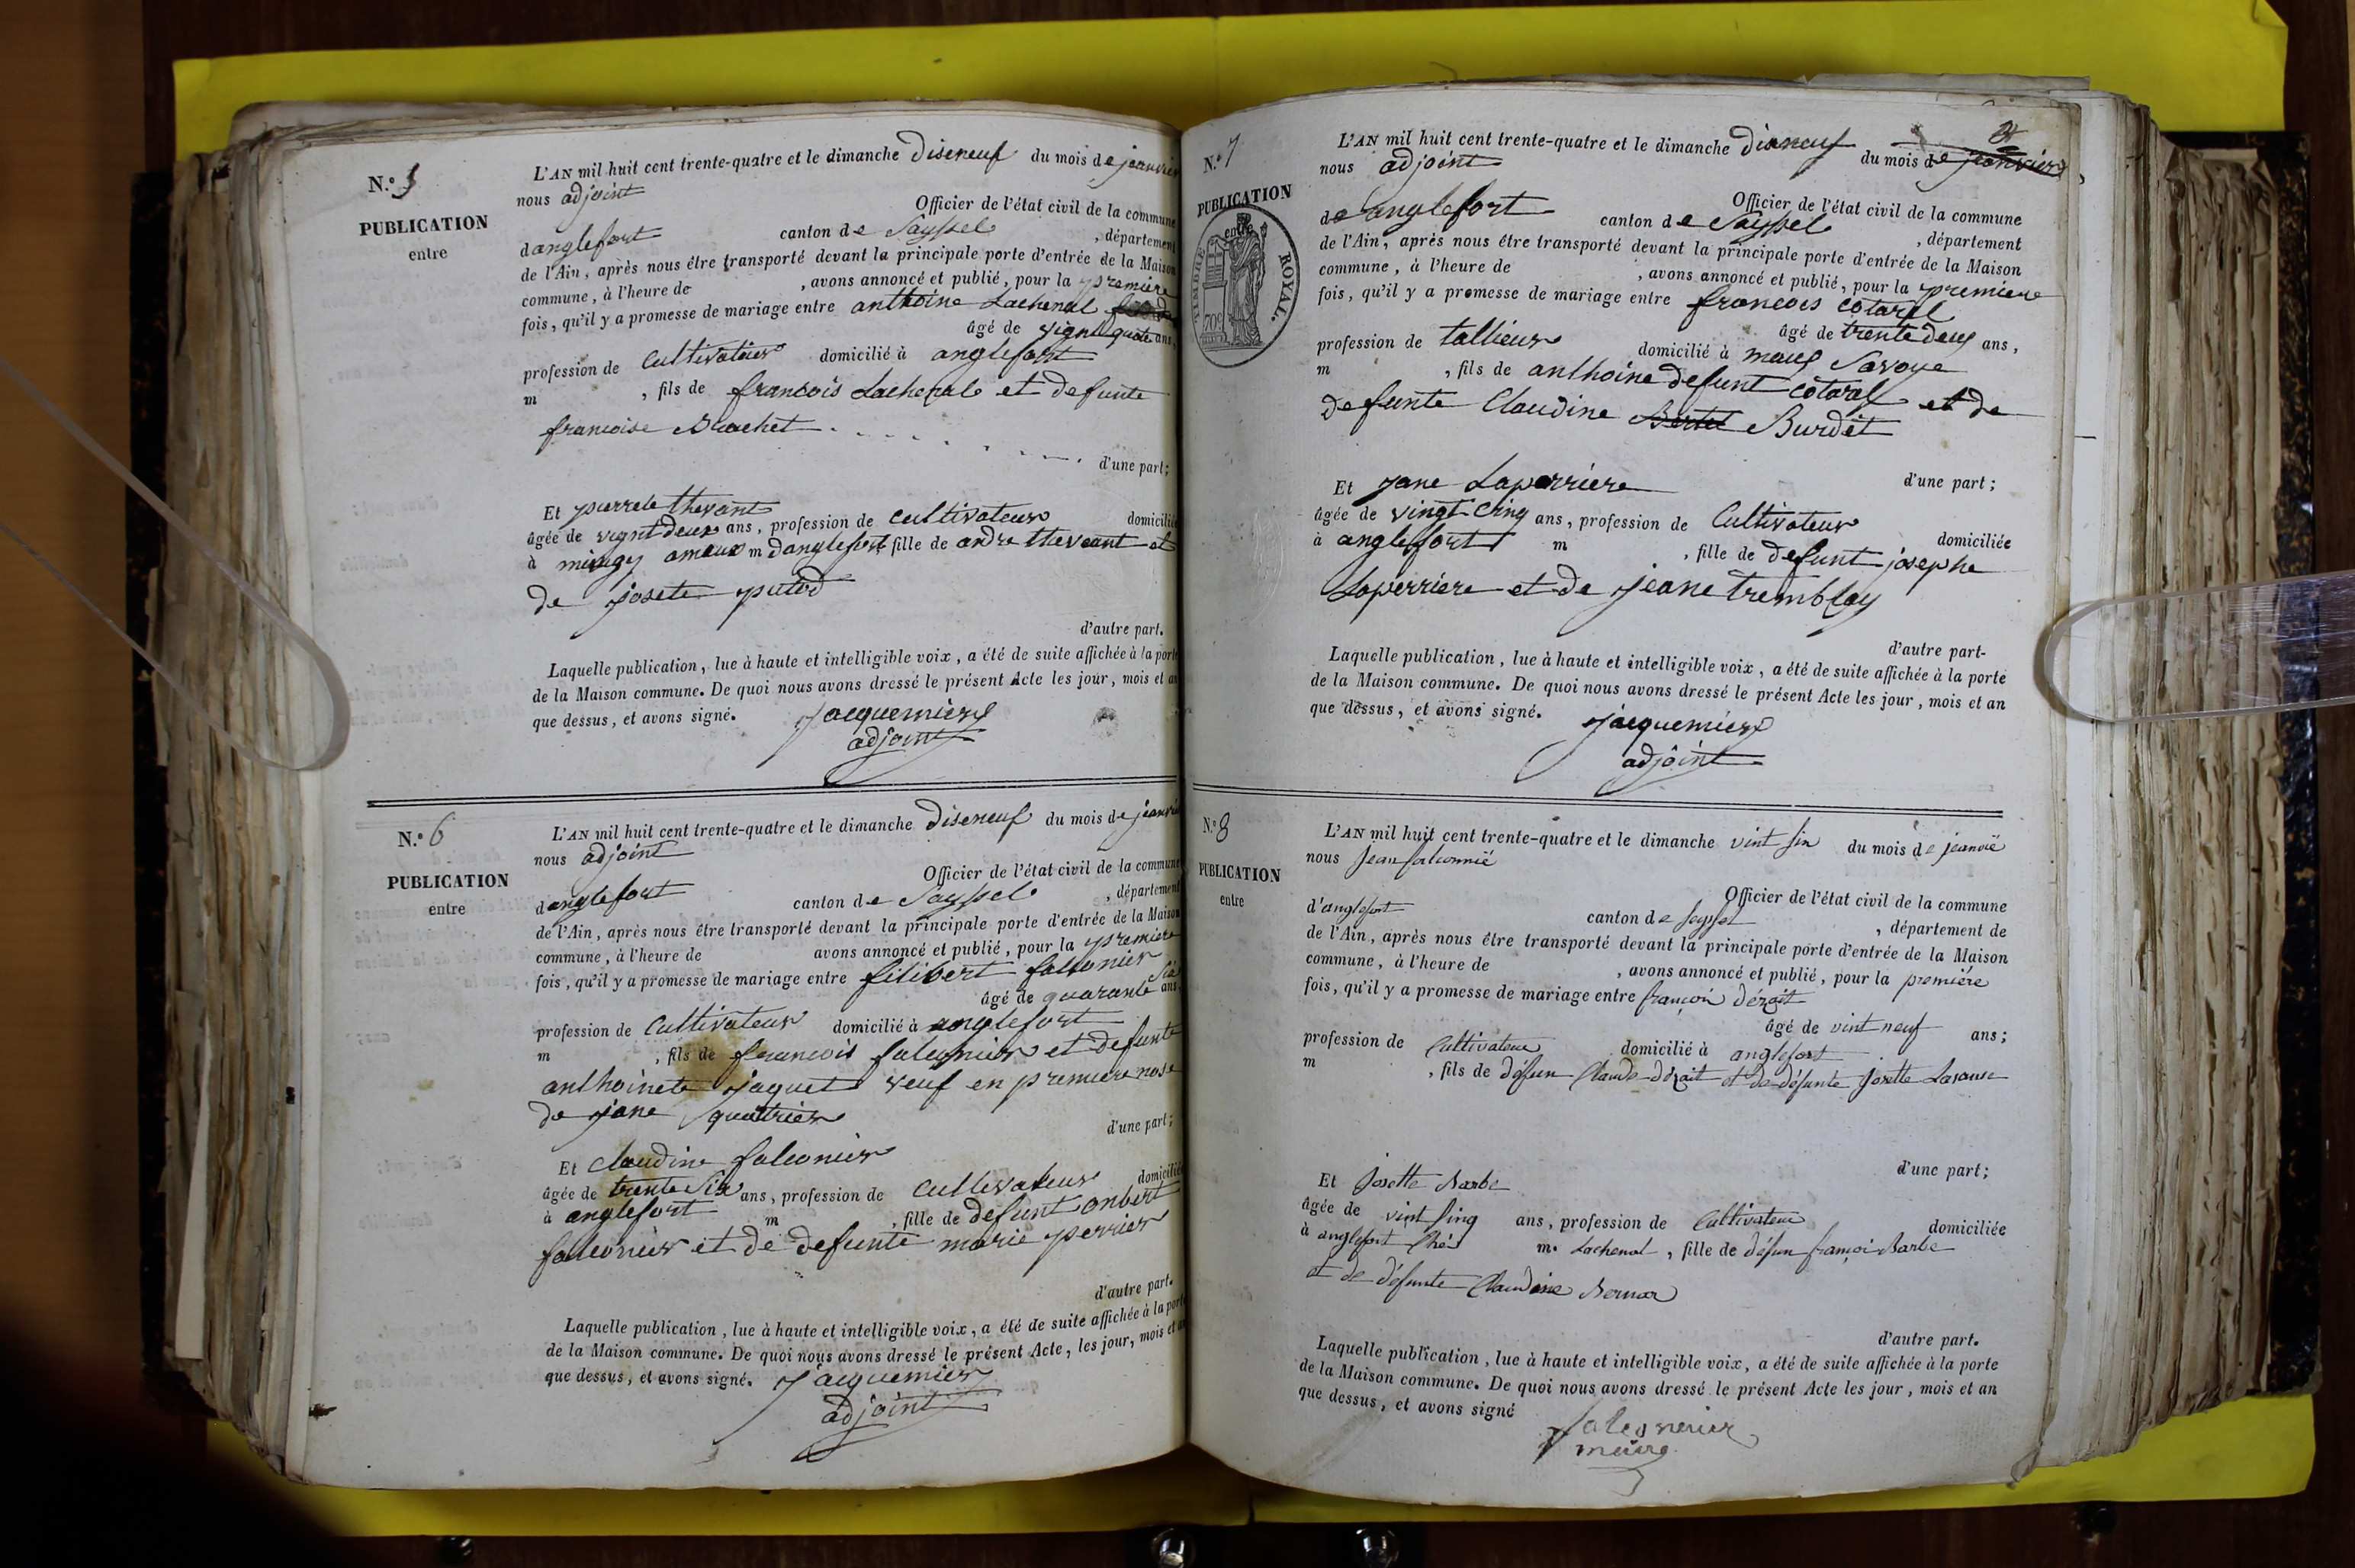 N.º 5
PUBLICATION
entre
L'AN mil huit cent trente-quatre et le dimanche diseneuf du mois de jeanvier
nous adjoint
Officier de l'état civil de la commune
danglefort canton de Sayssel , département
de l'Ain, après nous être transporté devant la principale porte d'entrée de la Maison
commune, à l'heure de , avons annoncé et publié, pour la premiere
fois, qu'il y a promesse de mariage entre anthoine Lachenal
âgé de vignt quate ans,
profession de Cultivateur domicilié à anglefort
m , fils de francois Lachenale et defunte
francoise Brachet
d'une part;
Et pierrete thevant
âgée de vignt deux ans, profession de cultivateur domicilié
à mieugy ameux m danglefort fille de andre thevant et
de josete putod
d'autre part.
Laquelle publication, lue à haute et intelligible voix, a été de suite affichée à la porte
de la Maison commune. De quoi nous avons dressé le présent Acte les jour, mois et an
que dessus, et avons signé. jacquemier
adjoint
N.º 6
PUBLICATION
entre
L'AN mil huit cent trente-quatre et le dimanche diseneuf du mois de jeanvier
nous adjoint
Officier de l'état civil de la commune
danglefort canton de Sayssel , département
de l'Ain, après nous être transporté devant la principale porte d'entrée de la Maison
commune, à l'heure de avons annoncé et publié, pour la premiere
fois, qu'il y a promesse de mariage entre filibert falconier
âgé de quarante six ans
profession de Cultivateur domicilié à anglefort
m , fils de francois falconier et defunte
anthoinete jaquet veuf en premiere nose
de jane quatrier
d'une part;
Et claudine falconier
âgée de trente six ans, profession de cultivateur domicilié
à anglefort m , fille de defunt onbert
falconier et de defunte marie perrier
d'autre part.
Laquelle publication, lue à haute et intelligible voix, a été de suite affichée à la porte
de la Maison commune. De quoi nous avons dressé le présent Acte, les jour, mois et an
que dessus, et avons signé. jacquemier
adjoint
N.º 7
PUBLICATION
entre
TIMBRE ROYAL.
70c
L'AN mil huit cent trente-quatre et le dimanche dixneuf du mois de jeanvier
nous adjoint
Officier de l'état civil de la commune
de anglefort canton de Sayssel , département
de l'Ain, après nous être transporté devant la principale porte d'entrée de la Maison
commune, à l'heure de , avons annoncé et publié, pour la premiere
fois, qu'il y a promesse de mariage entre francois cotarel
âgé de trente deux ans,
profession de tallieur domicilié à Savoye
m , fils de anthoine defunt cotarel et de
defunte Claudine Bertet Burdet
d'une part;
Et jane Laperriere
âgée de vingt cinq ans, profession de Cultivateur domiciliée
à anglefort m , fille de defunt josephe
Laperriere et de jeane tremblay
d'autre part-
Laquelle publication, lue à haute et intelligible voix, a été de suite affichée à la porte
de la Maison commune. De quoi nous avons dressé le présent Acte les jour, mois et an
que dessus, et avons signé. jacquemier
adjoint
N.º 8
PUBLICATION
entre
L'AN mil huit cent trente-quatre et le dimanche vint sin du mois de jeanvié
nous jean falconnié
Officier de l'état civil de la commune
d'anglefort canton de seyssel , département de
de l'Ain, après nous être transporté devant la principale porte d'entrée de la Maison
commune, à l'heure de , avons annoncé et publié, pour la première
fois, qu'il y a promesse de mariage entre françoi dérait
âgé de vint neuf ans;
profession de Cultivateur domicilié à anglefort
m , fils de défun Claude dérait et de défunte Josette Larause
d'une part;
Et Josette Barbe
âgée de vint sinq ans, profession de Cultivateur domiciliée
à anglefort Chés m. Lachenal , fille de défun françoi Barbe
et de défunte Claudine Bernar
d'autre part.
Laquelle publication, lue à haute et intelligible voix, a été de suite affichée à la porte
de la Maison commune. De quoi nous avons dressé le présent Acte les jour, mois et an
que dessus, et avons signé
falconnier
maire